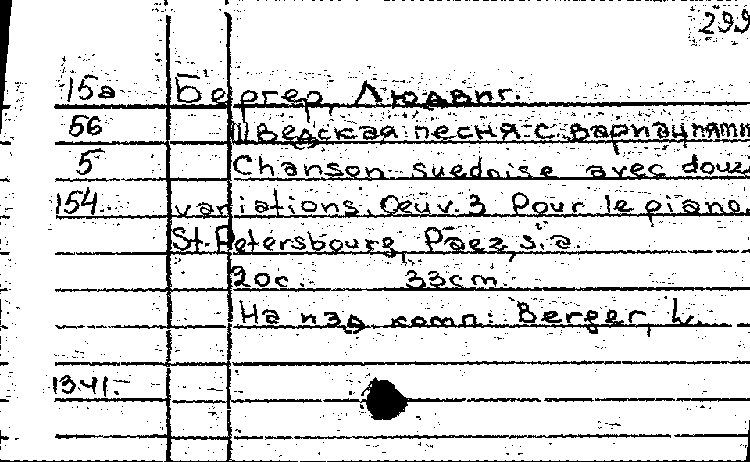 299
15а Бергер, Людвиг.
56 Шведская песня с вариациями
5 Chanson suedoise avec douz
154 variations. Oeuv. 3 Pour le piano.
St.-Petersbourg, Paez, s.a.
20с. 33cm.
На изд комп: Berger, L.
1341.